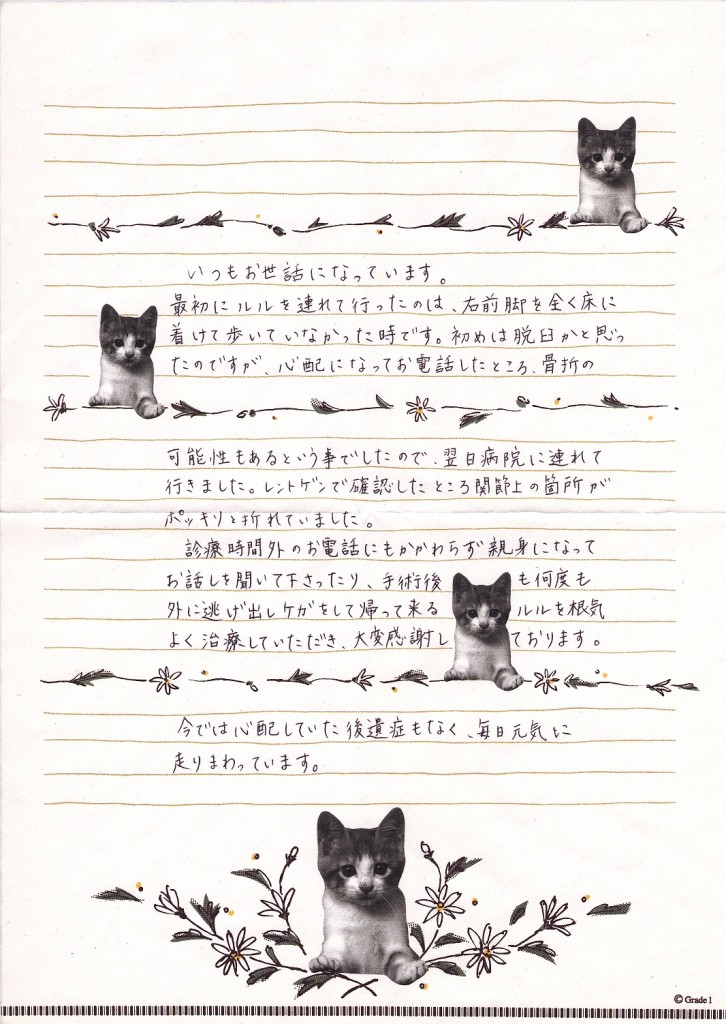 いつもお世話になっています。
最初にルルを連れて行ったのは、右前脚を全く床に
着けて歩いていなかった時です。初めは脱臼かと思っ
たのですが、心配になってお電話したところ、骨折の
可能性もあるという事でしたので、翌日病院に連れて
行きました。レントゲンで確認したところ関節上の箇所が
ポッキリと折れていました。
診療時間外のお電話にもかかわらず親身になって
お話しを聞いて下さったり、手術後も何度も
外に逃げ出しケガをして帰って来るルルを根気
よく治療していただき、大変感謝しております。
今では心配していた後遺症もなく、毎日元気に
走りまわっています。
© Grade 1